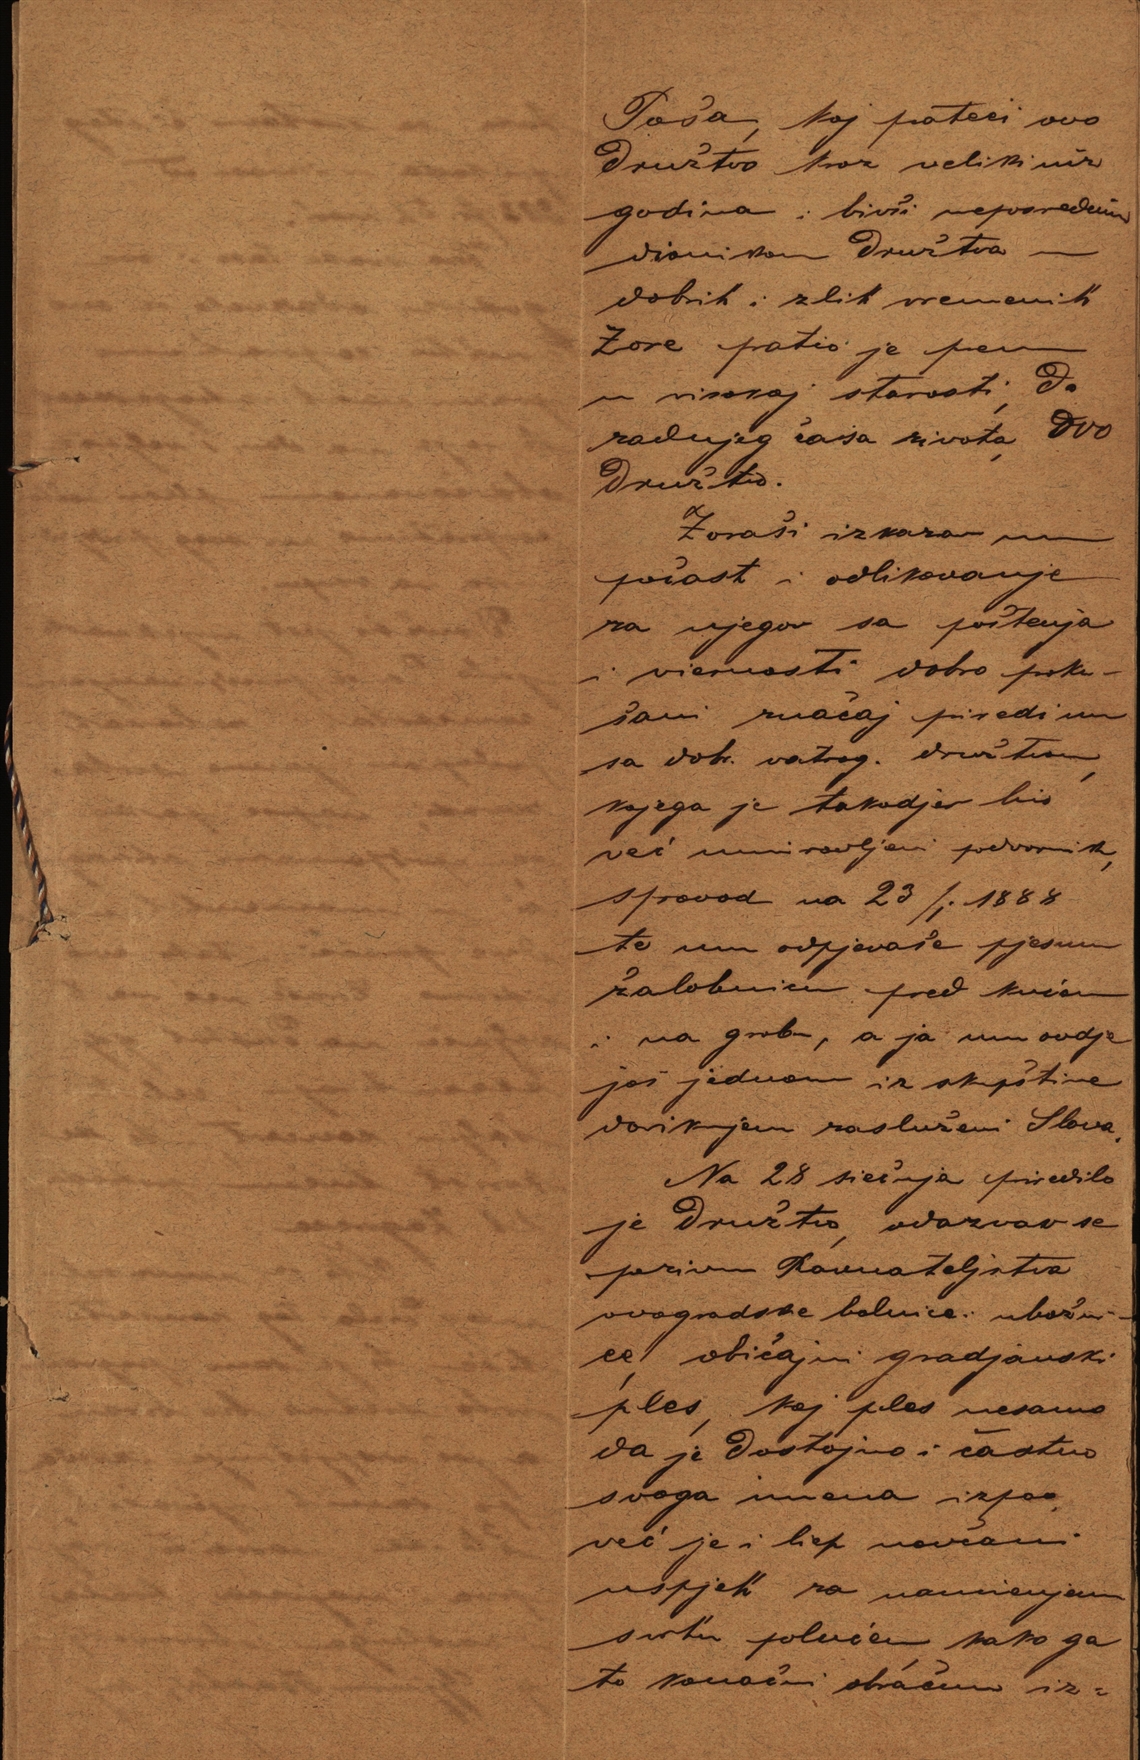 Toša, koj prateći ovo
Družtvo kroz veliki niz
godina i bivši neposrednim
dionikom Družtva u
dobrih i zlih vremenih
Zore patio je prem
u visokoj starosti, do
zadnjeg časa života, ovo
Družtvo.
Zoraši izkazav mu
počast i odlikovanje
za njegov sa poštenja
i viernosti dobro proku-
šani značaj prirediu mu
sa dobr. vatrog. družtvom,
kojega je takodjer bio
već umirovljeni podvornik,
sprovod na 23/1. 1888
te mu odpjevaše pjesmu
žalobnicu pred kućom
i na grobu, a ja mu ovdje
još jednom iz skupštine
dovikujem zasluženi Slava.
Na 28 siečnja priredilo
je Družtvo, odazvav se
pozivu Ravnateljstva
ovogradske bolnice i ubožni-
ce, običajni gradjanski
ples, koj ples nesamo
da je dostojno i častno
svoga imena izpao,
već je i liep novčani
uspjeh za namienjenu
svrhu polučen, kako ga
to konačni obračun iz-